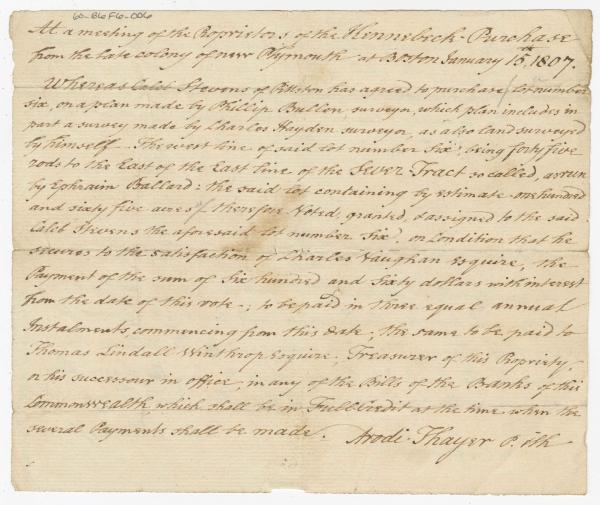 60-B6F6-006
At a meeting of the Proprietors of the Kennebeck Purchase
from the late colony of new Plymouth at Boston January 15th 1807.
Whereas Caleb Stevens of Pittston has agreed to purchase lot number
six, on a plan made by Philip Bullen, surveyor, which plan includes in
part a survey made by Charles Hayden surveyor, as also land surveyed
by himself - The west line of said lot number Six, being forty five
rods to the East of the East line of the Sever Tract so called, as run
by Ephraim Ballard: the said lot containing by estimate one hundred
and sixty five acres therefore Voted, granted, & assigned to the said
Caleb Stevens the aforesaid lot number Six, on Condition that he
secures to the satisfaction of Charles Vaughan Esquire, the
Payment of the sum of Six hundred and Sixty dollars with interest
from the date of this vote; to be paid in three equal annual
Instalments, commencing from this date; the same to be paid to
Thomas Lindall Winthrop Esquire, Treasurer of this Propriety,
or his successour in office, in any of the Bills of the Banks of this
Commonwealth which shall be in Full Credit at the time when the
several Payments shall be made. Arodi Thayer P. Clk